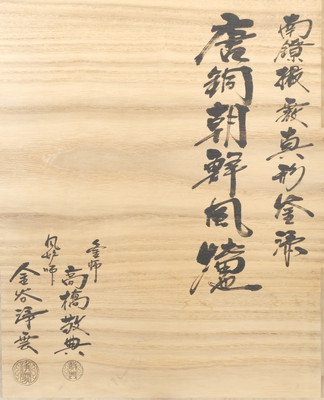 南鐐摘霰真形釜添
唐銅朝鮮風爐
釜師
高橋敬典
風炉師
金谷浄雲